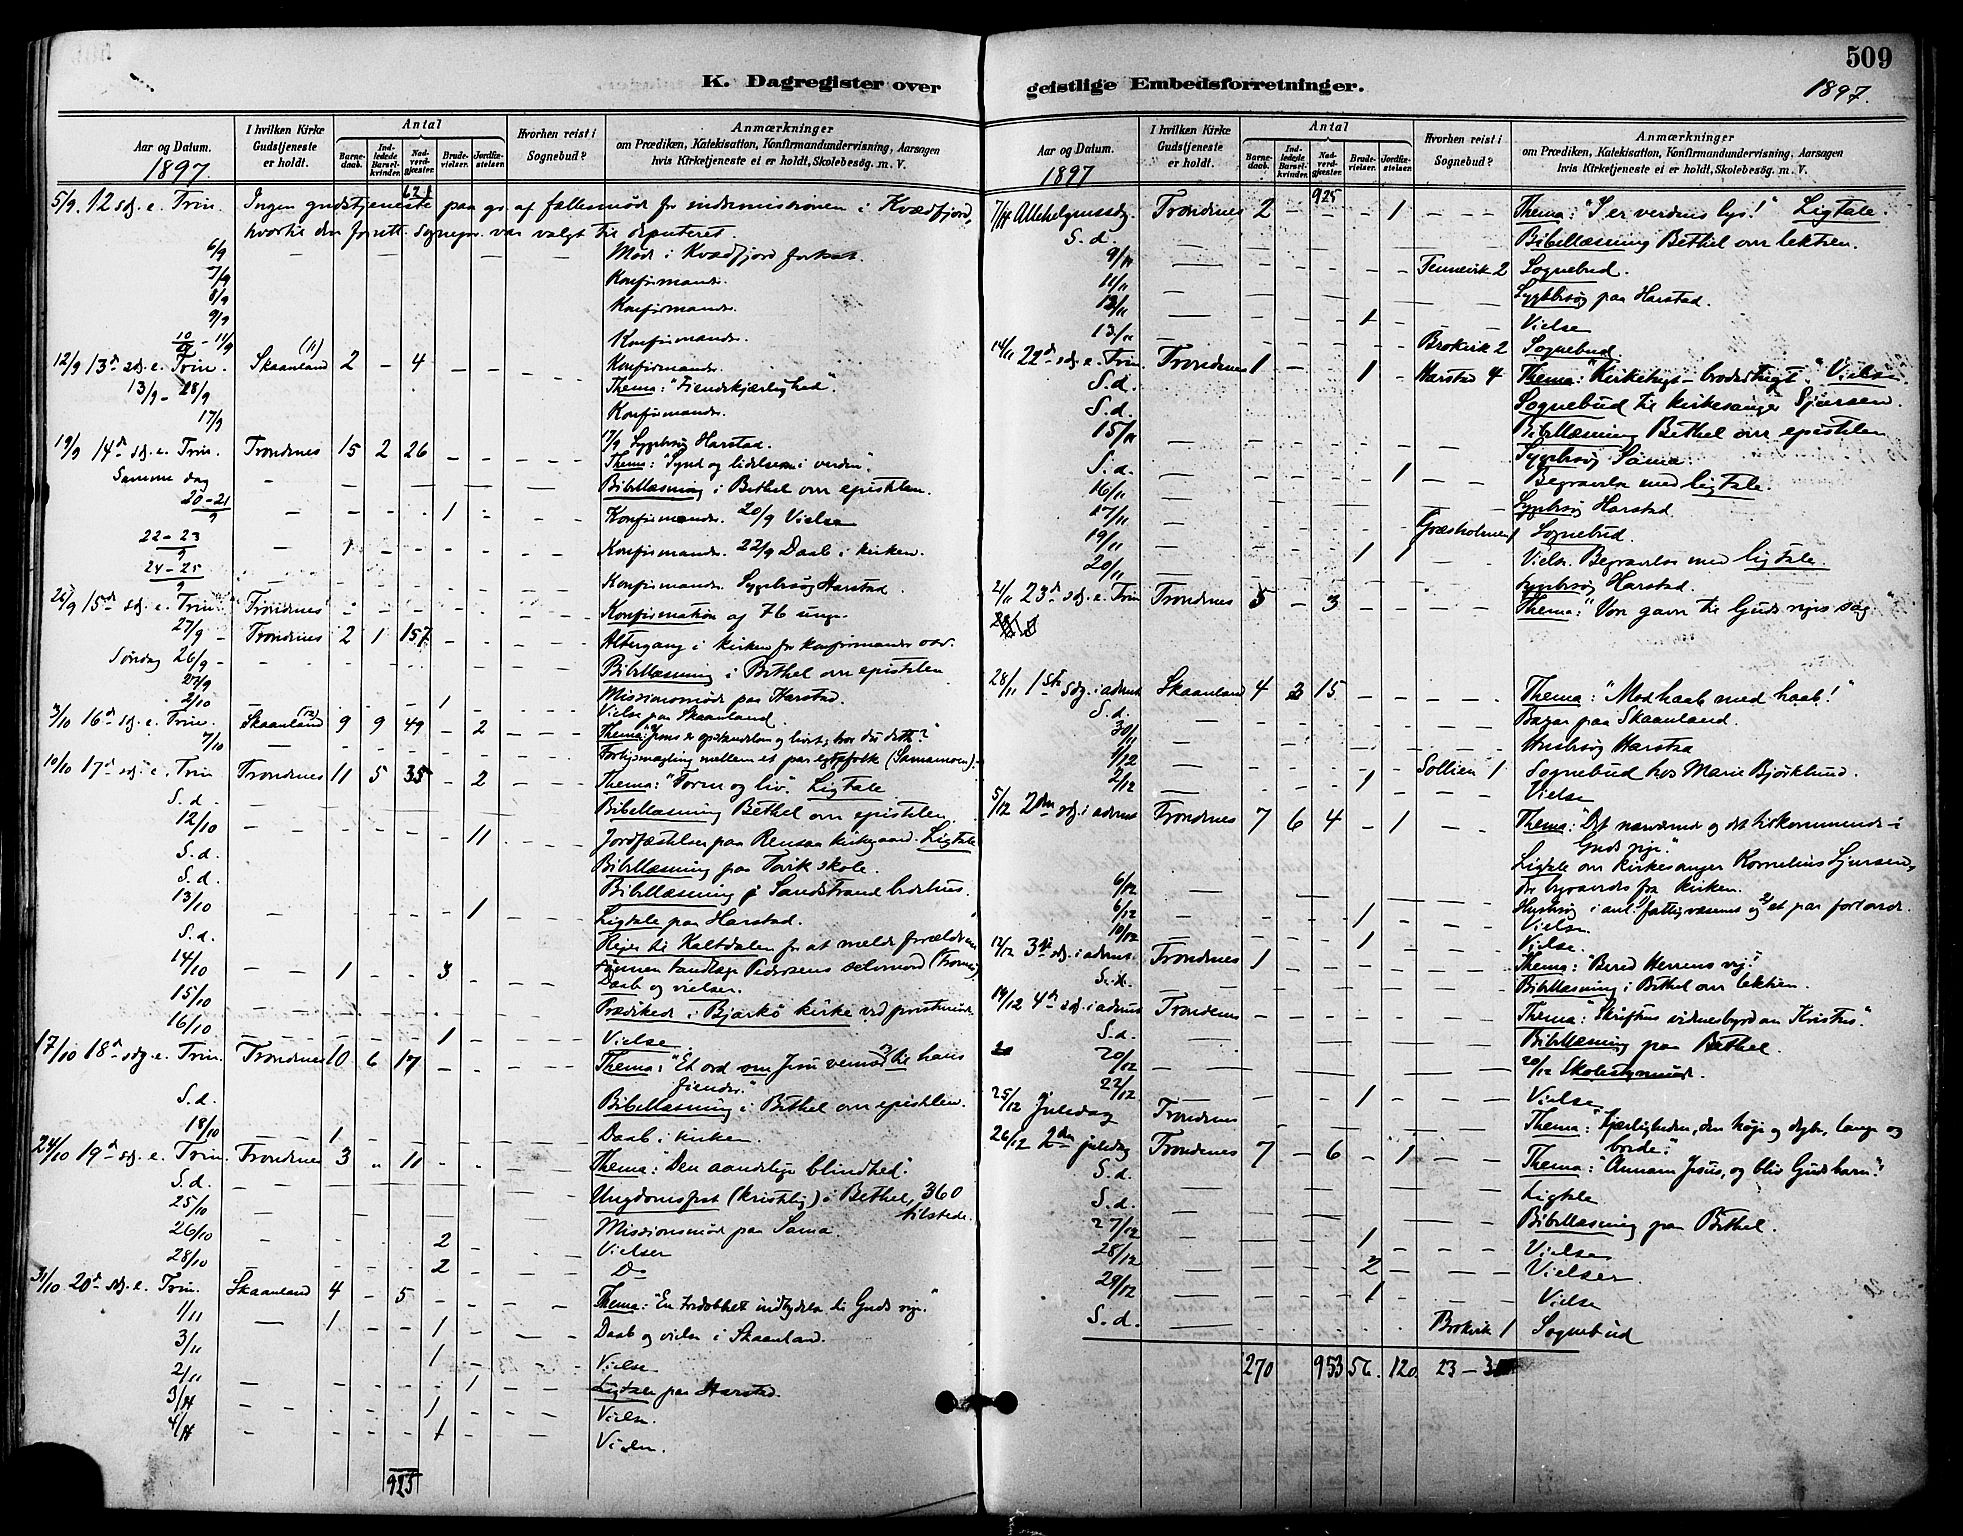 509
K. Dagregister over geistlige Embedsforretninger.
1897.
Aar og Datum.
1897.
I hvilken Kirke Gudstjeneste er holdt.
Antal
Barnedaab.
Indledede Barselkvinder.
Nadverdgjæster.
Brudevielser.
Jordfæstelser.
Hvorhen reist i Sognebud?
Anmærkninger
om Prædiken, Katekisation, Konfirmandundervisning, Aarsagen hvis Kirketjeneste ei er holdt, Skolebesøg. m. V.
621
5/9. 12 sdg. e. Trin. Ingen gudstjeneste paa gr. af fællesmøde for indremissionen i Kvædfjord,
hvortil den forrett. sognepr. var valgt til deputeret.
6/9 Møde i Kvædfjord fortsat
7/9 Konfirmander.
8/9 Konfirmander.
9/9
10/9 - 11/9 Konfirmander.
12/9 13de sdg. e. Trin. Skaanland (11) 2 - 4 - - Konfirmander.
Thema: "Fiendskjærlighed".
13/9 - 18/9 Konfirmander.
17/9 17/9 Sygebesøg Harstad.
19/9 14de sdg. e. Trin. Trondenes 15 2 26 - - Thema: "Synd og lidelsen i verden".
Samme dag Bibellæsning i Bethel om epistelen.
20-21/9 1 Konfirmander. 20/9 Vielse
22-23/9 1 Konfirmander. 22/9 Daab i kirken.
24-25/9 Konfirmander. Sygebesøg Harstad.
26/9 15de sdg. e. Trin. Trondenes Konfirmation af 76 unge.
27/9 - Trondenes 2 1 157 Altergang i kirken for konfirmander osv.
Søndag 26/9 - Bibellæsning i Bethel om epistelen
27/9 Missionsmøde paa Harstad.
2/10 1 Vielse paa Skaanland.
3/10 16de sdg. e. Trin. Skaanland (12) 9 9 49 - 2 Thema: "Jesus er opstandelsen og livet; tror du dette?"
7/10 Forligsmægling mellem et par egtefolk (Samamoen).
10/10 17de sdg. e. Trin Trondenes 11 5 35 - 2 Thema: "Form og liv". Ligtale
S. d. Bibellæsning Bethel om epistelen.
12/10 11 Jordfæstelser paa Rensaa kirkegaard. Ligtale
S. d. Bibellæsning paa Tovik skole.
S. d. Bibellæsning i Sandstrand bedehus.
13/10 1 Ligtale paa Harstad.
S. d. Rejse til Kaltdalen for at melde forældrene
sønnen tandlæge Pedersens selvmord (Tromsø)
14/10 1 - - 3 Daab og vielser.
15/10 Prædiked i Bjarkø kirke ved provstemøde
16/10 1 Vielse.
17/10 18de sdg. e. Trin. Trondenes 10 6 17 Thema: "Et ord om Jesu venner til hans
fiender."
S. d. Bibellæsning i Bethel om epistelen.
18/10 1 Daab i kirken.
24/10 19de sdg. e. Trin. Trondenes 3 " 11 Thema: "Den aandelige blindhed".
S. d. Ungdomsfest (kristlig) i Bethel, 360
tilstede.
25/10 Missionsmøde paa Sama.
26/10 2 Vielser
28/10 2 Do
31/10 20de sdg. e. Trin. Skaanland 4 - 5 Thema: "En tredobbelt indbydelse til Guds rige."
1/11 1 - - 1 Daab og vielse i Skaanland.
3/11 1 Vielse
2/11 1 Ligtaler paa Harstad.
3/11 1 Vielse.
4/11 1 Vielse.
925
Aar og Datum.
1897
I hvilken Kirke Gudstjeneste er holdt.
Antal
Barnedaab.
Indledede Barselkvinder.
Nadverdgjæster.
Brudevielser.
Jordfæstelser.
Hvorhen reist i Sognebud?
Anmærkninger
om Prædiken, Katekisation, Konfirmandundervisning, Aarsagen hvis Kirketjeneste ei er holdt, Skolebesøg. m. V.
925
7/11 Allehelgenssdg. Trondenes 2 - - - 1 Thema: "I er verdens lys!" Ligtale.
S. d. Bibellæsning Bethel om lektien.
9/11 Tennevik 2 Sognebud.
11/11 Sygebesøg paa Harstad.
12/11 1 Vielse
13/11 Brokvik 2 Sognebud.
14/11 22de sdg. e. Trin. Trondenes 1 - - 1 - Harstad 4 Thema: "Kirketugt - brodertugt." Vielse.
S. d. Sognebud til kirkesanger Sjursen.
S. d. Bibellæsning Bethel om epistelen
15/11 Sygebesøg Sama.
S. d. 1 Begravelse med ligtale.
16/11 Sygebesøg Harstad.
17/11 Græsholmen 1 Sognebud.
19/11 1 1 Vielse. Begravelse med ligtale.
20/11 Sygebesøg Harstad.
21/11 23de sdg. e. Trin Trondenes 5 - 3 - - Thema: "Vor gavn til Guds riges sag."
28/11 1ste sdg. i advent Skaanland 4 3 15 Thema: "Mod haab med haab!"
S. d. Bazar paa Skaanland.
30/11 Husbesøg Harstad
1/12 Sollien 1 Sognebud hos Marie Bjørklund.
2/12 1 Vielse
5/12 2den sdg. i advent Trondenes 7 6 4 - 1 Thema: "Det nærværende og det tilkommende i
Guds rige."
Ligtale om kirkesanger Kornelius Sjursen,
der begravedes fra kirken.
6/12 Husbesøg i anl. 1) fattigvæsenet og 2) et par forlovede.
6/12 1 Vielse.
10/12 1 Vielse.
12/12 3die sdg. i advent. Trondenes 1 Thema: "Bered Herrens vej."
S. d. Bibellæsning i Bethel om lektien.
19/12 4de sdg. i advent Trondenes Thema: "Skriftens vidnesbyrd om Kristus".
S. d. Bibellæsning paa Bethel.
20/12 20/12 Skolestyremøde.
22/12 1 Vielse
25/12 Juledag Trondenes Thema: "Kjærligheden, den høje og dybe, lange og
brede."
26/12 2den juledag Trondenes 7 - 6 - 1 Thema: "Annam Jesus, og bliv Guds barn!"
S. d. Ligtale
S. d. Bibellæsning paa Bethel.
27/12 1 Vielse
28/12 2 Vielser.
29/12 1 Vielse
S. d. Brokvik 1 Sognebud
270 953 56. 120. 23 -